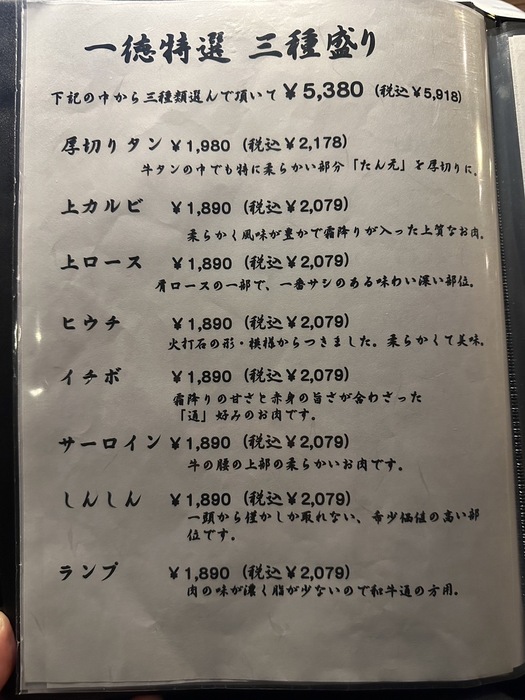 一徳特選 三種盛り
下記の中から三種類選んで頂いて ¥5,380 (税込¥5,918)
厚切りタン ¥1,980 (税込¥2,178)
牛タンの中でも特に柔らかい部分「たん元」を厚切りに。
上カルビ ¥1,890 (税込¥2,079)
柔らかく風味が豊かで霜降りが入った上質なお肉。
上ロース ¥1,890 (税込¥2,079)
肩ロースの一部で、一番サシのある味わい深い部位。
ヒウチ ¥1,890 (税込¥2,079)
火打石の形・模様からつきました。柔らかくて美味。
イチボ ¥1,890 (税込¥2,079)
霜降りの甘さと赤身の旨さが合わさった
「通」好みのお肉です。
サーロイン ¥1,890 (税込¥2,079)
牛の腰の上部の柔らかいお肉です。
しんしん ¥1,890 (税込¥2,079)
一頭から僅かしか取れない、希少価値の高い部
位です。
ランプ ¥1,890 (税込¥2,079)
肉の味が濃く脂が少ないので和牛通の方用。